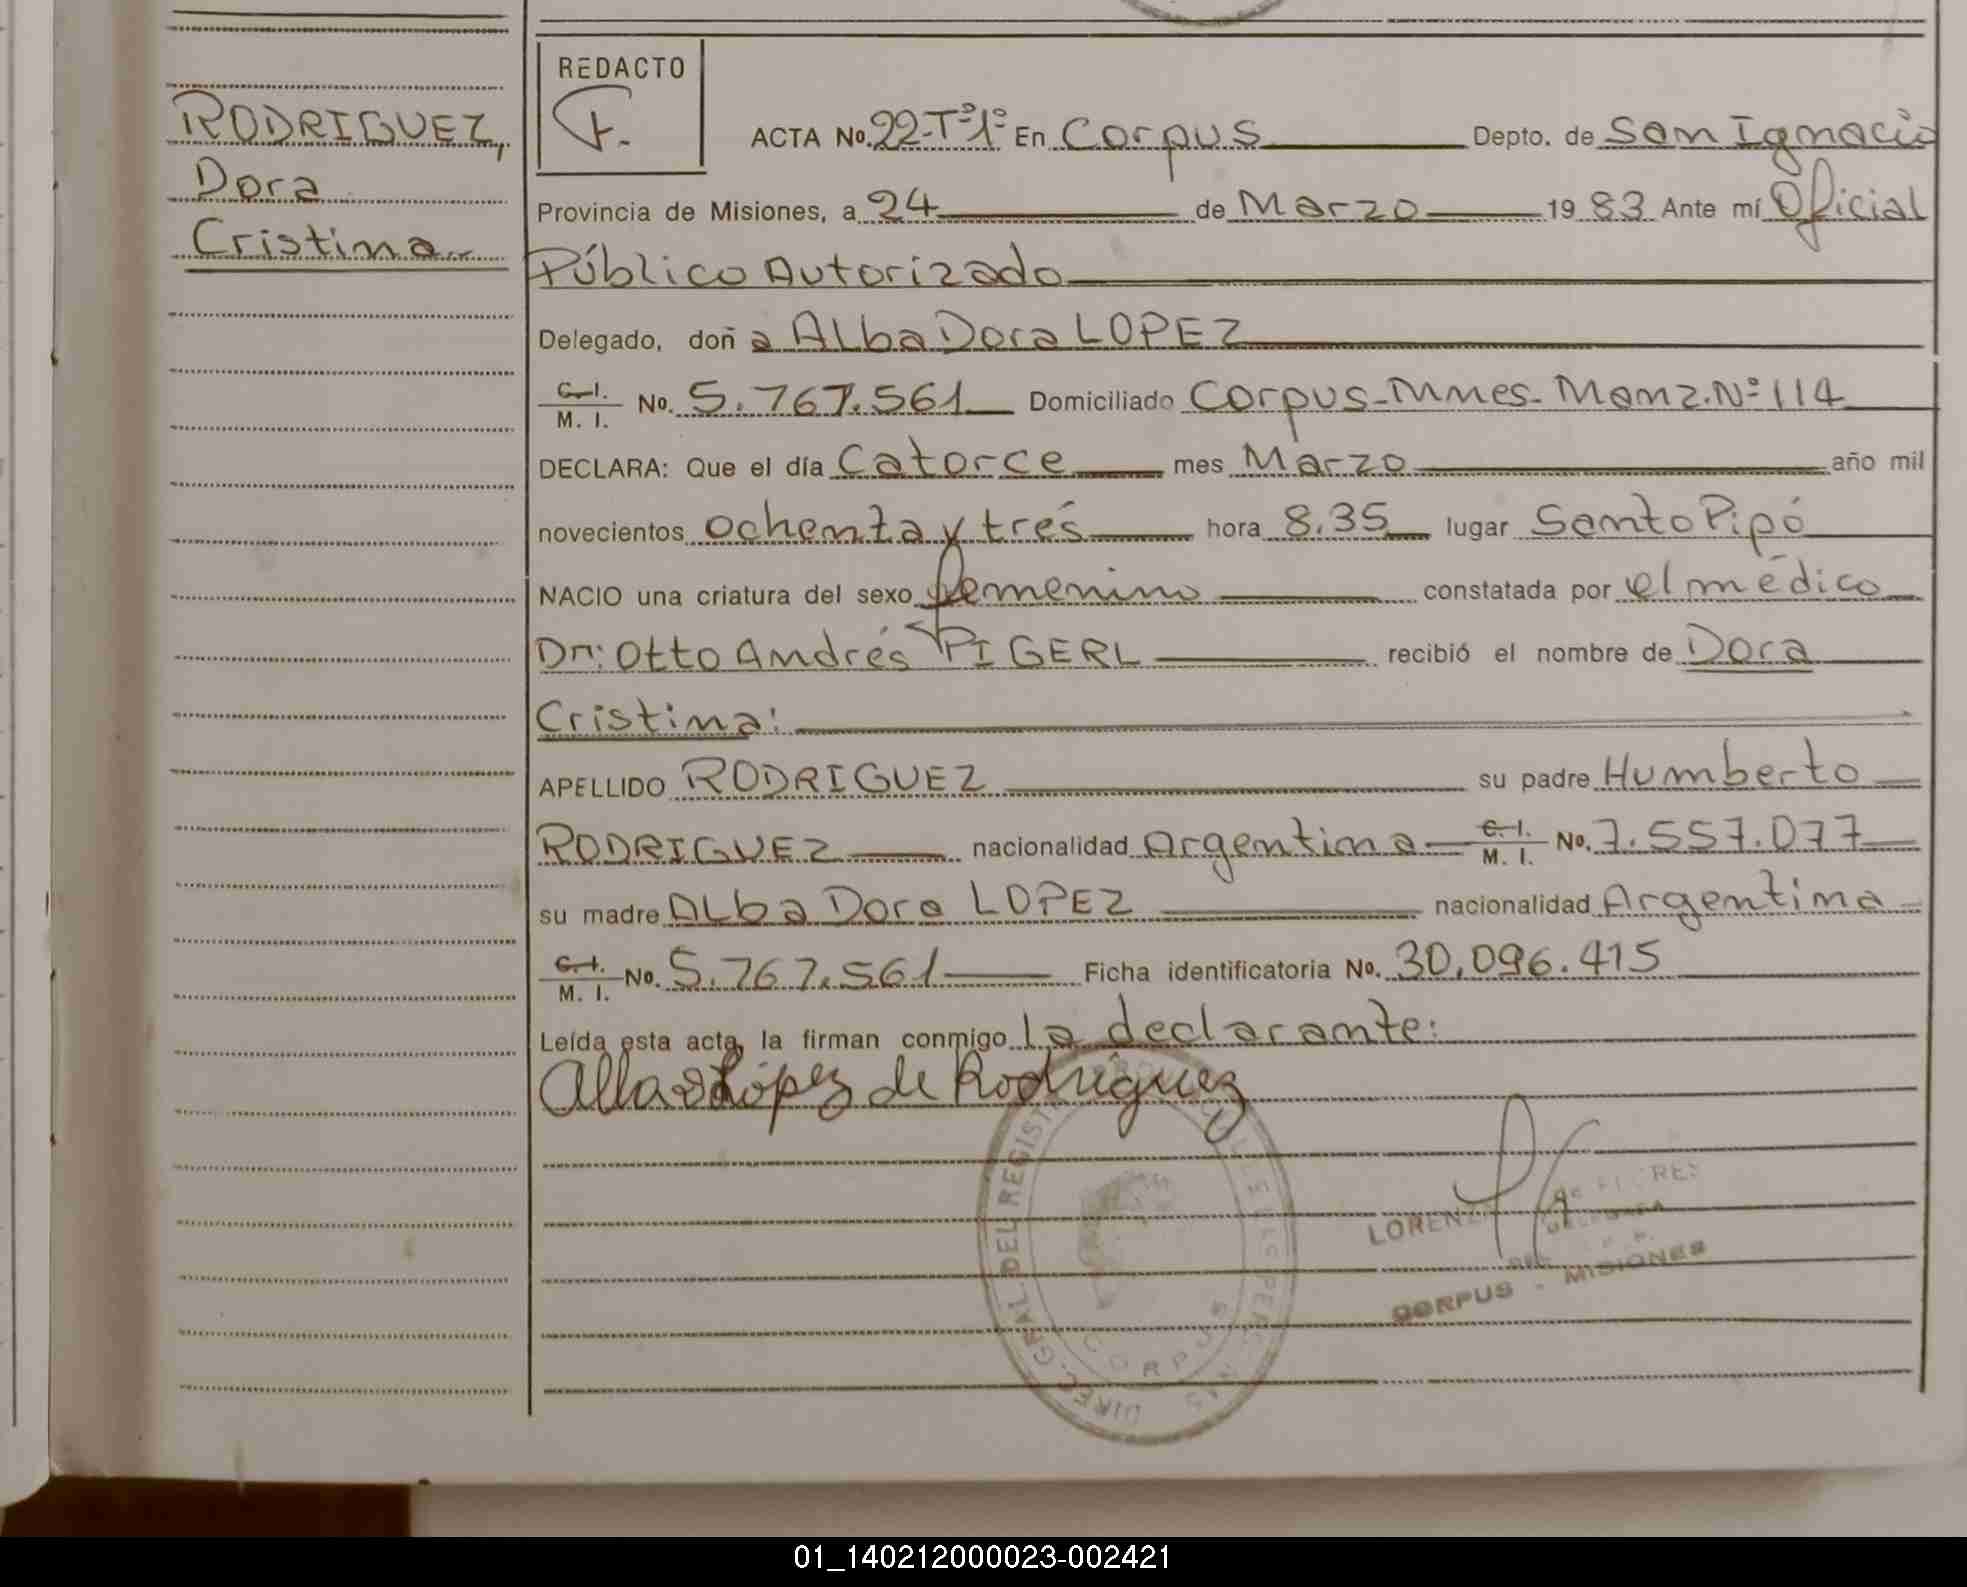 RODRIGUEZ,
Dora
Cristina
REDACTO
ACTA No. 22-Tº1º En Corpus Depto. de San Ignacio
Provincia de Misiones, a 24 de Marzo 1983 Ante mí Oficial
Público Autorizado
Delegado, doña Alba Dora LOPEZ
C. I. / M. I. No. 5.767.561 Domiciliado Corpus-Mnes-Manz.Nº114
DECLARA: Que el día Catorce mes Marzo año mil
novecientos ochenta y trés hora 8.35 lugar Santo Pipó
NACIO una criatura del sexo femenino constatada por el médico
Dr: Otto Andrés PIGERL recibió el nombre de Dora
Cristina:
APELLIDO RODRIGUEZ su padre Humberto
RODRIGUEZ nacionalidad Argentina C. I. / M. I. No. 7.557.077
su madre Alba Dora LOPEZ nacionalidad Argentina
C. I. / M. I. No. 5.767.561 Ficha identificatoria No. 30.096.415
Leída esta acta, la firman conmigo la declarante:
López de Rodríguez
DIREC. GRAL. DEL REGIST
CORPUS
CORPUS - MISIONES
01_140212000023-002421